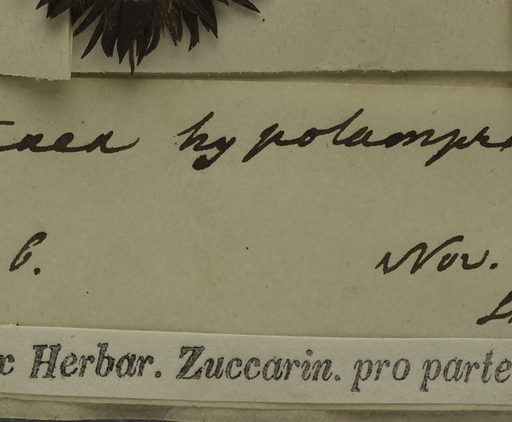 taea hypolampra
b. Nov.
x Herbar. Zuccarin. pro parte